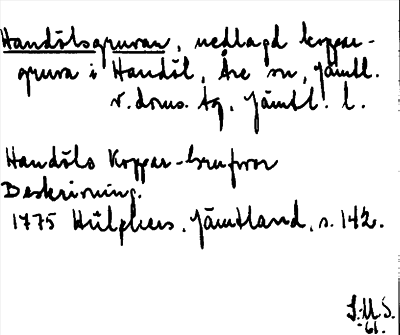 Handölsgruvan, nedlagd koppar-
gruva i Handöl, Åre sn, Jämtl.
v. doms. tg, Jämtl. l.
Handöls Koppar-Grufvor
Beskrivning.
1775 Hülphers, Jämtland, s. 142.
S.M.S.
-61.